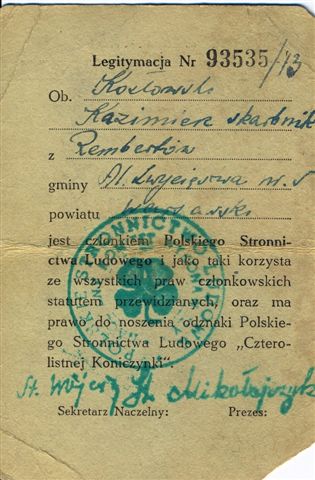 Legitymacja Nr 93535/43
Ob. Kozłowski
Kazimierz skarbnik
z Rembertów
gminy Al. Zwycięstwa nr. 5
powiatu Warszawski
jest członkiem Polskiego Stronni-
ctwa Ludowego i jako taki korzysta
ze wszystkich praw członkowskich
statutem przewidzianych, oraz ma
prawo do noszenia odznaki Polskie-
go Stronnictwa Ludowego „Cztero-
listnej Koniczynki".
St. Wójcik St. Mikołajczyk
Sekretarz Naczelny: Prezes:
STRONNICTWO